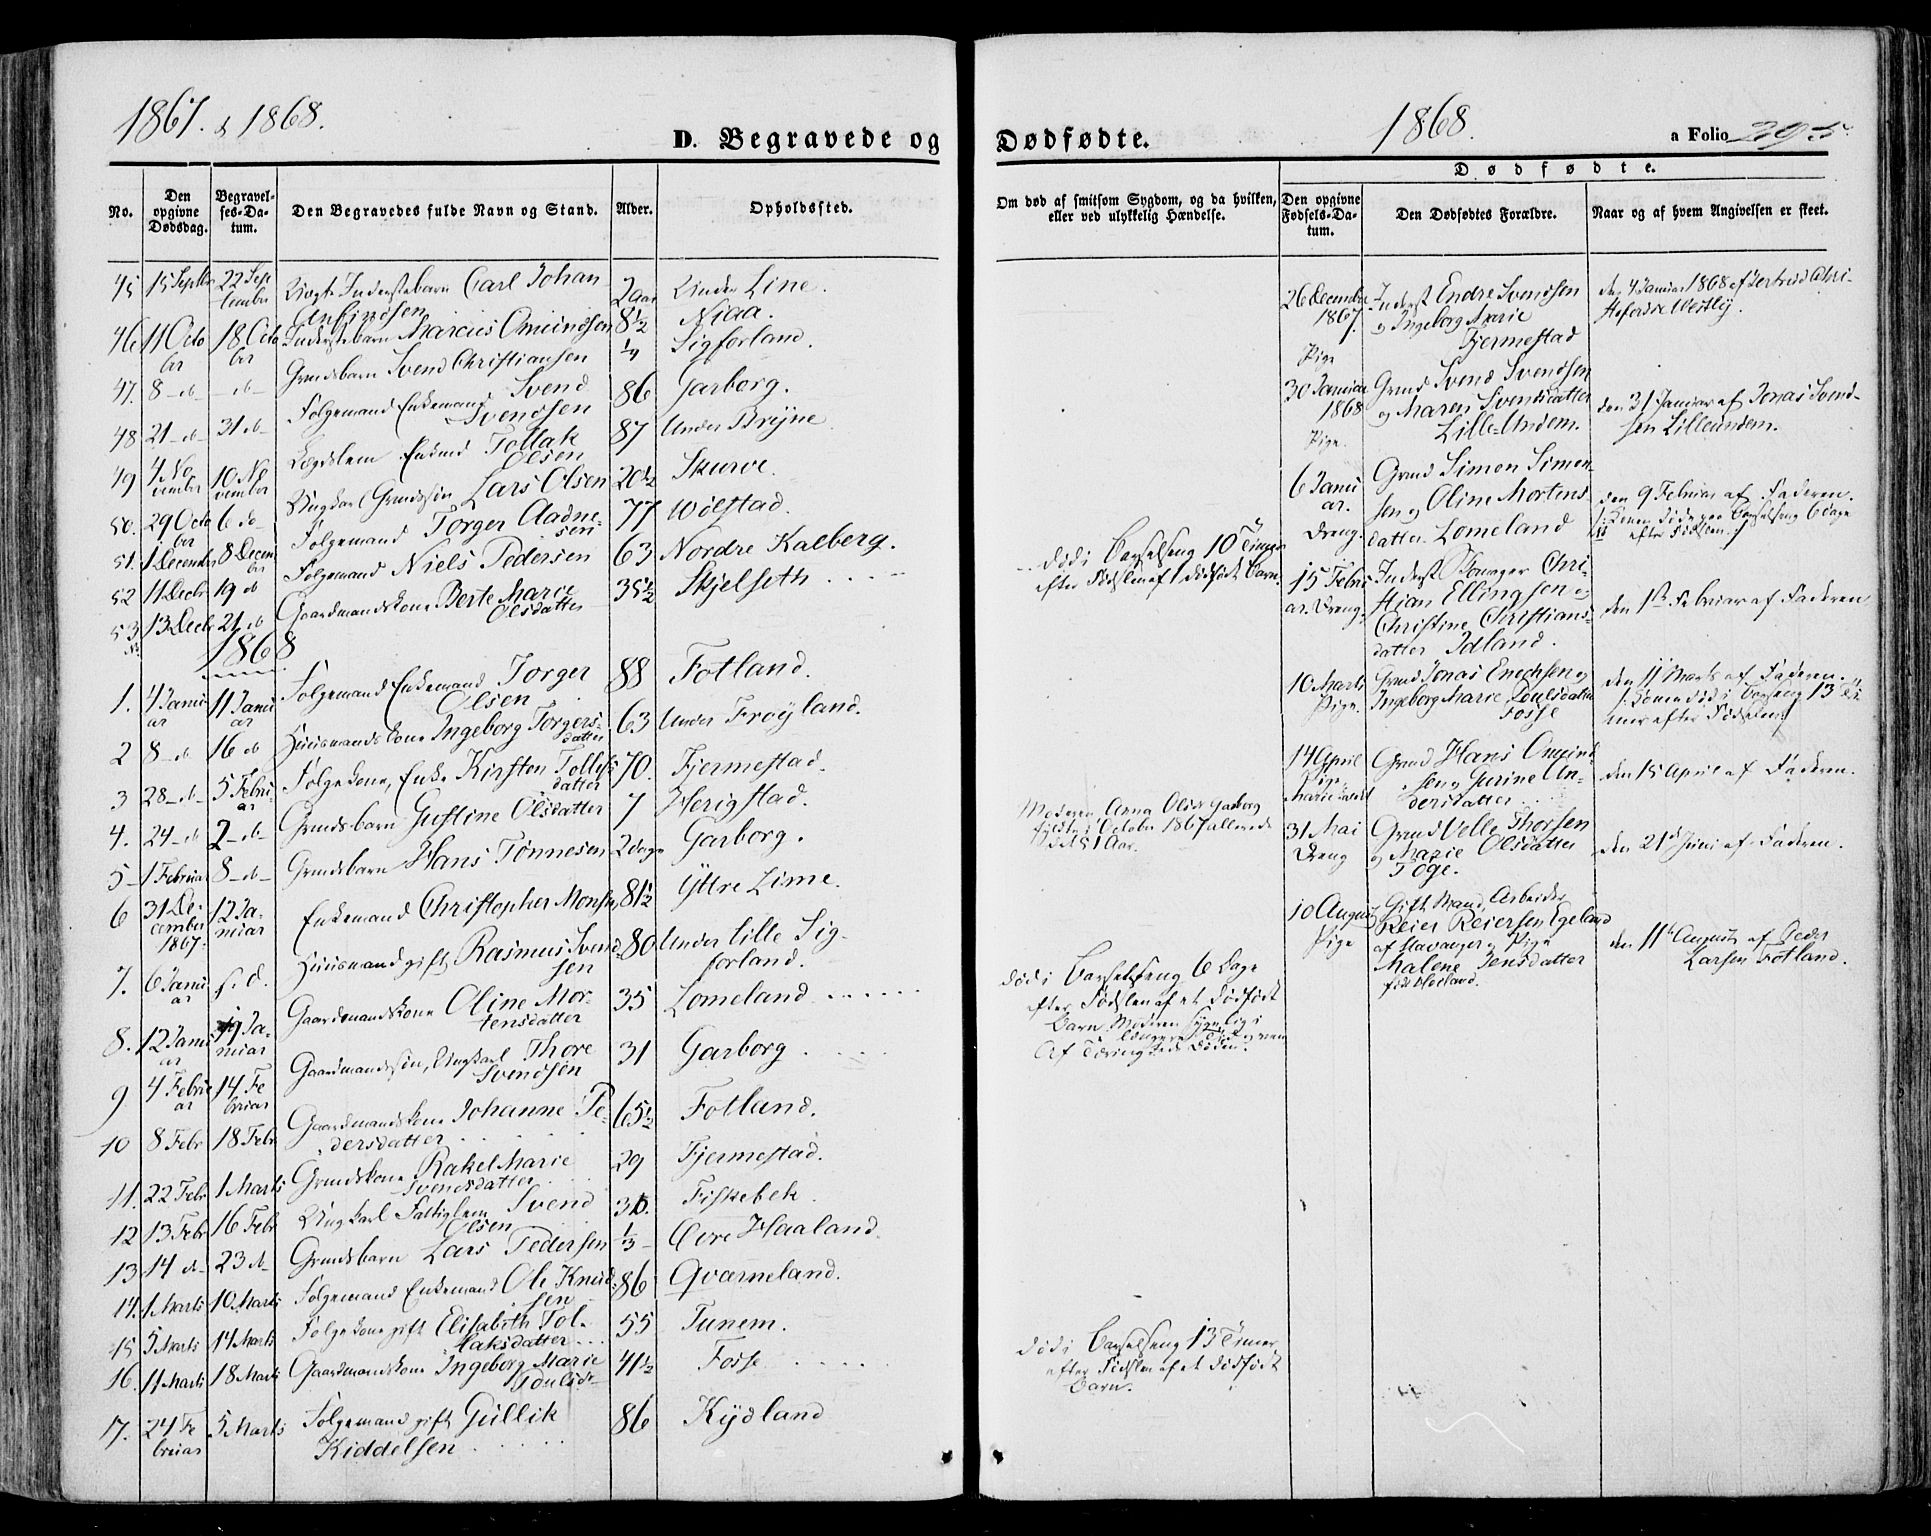 1867. & 1868.
D. Begravede og
No.
Den opgivne Dødsdag.
Begravelses-Datum.
Den Begravedes fulde Navn og Stand.
Alder.
Opholdssted.
45 15 Septbr 22 September Uægte Inderstebarn Carl Johan 2 aar Under Line.
46 11 October 18 October Inderstebarn Marcus Omundsen 8½ Niaa.
47. 8 - d - - d - Grmdsbarn Svend Christiansen ¼ Sigforland.
48 21 - d 31 d - Folgemand Enkemand Svend Svendsen 86 Garborg.
49 4 November 10 November Lægdslem Tollak Olsen 87 Under Bryne.
50. 29 October 6 Ungkarl Grmdssøn Lars Olsen 20½ Skurve.
51. 1 December 8 December Folgemand Torger Aadnesen 77 Wølstad.
52 11 Decbr 19 d Folgemand Niels Pedersen 63 Nordre Kalberg.
53 13 Decbr 21 d - Gaardmandskone Berte Marie Olsdatter 35½ Skjelseth . . . .
1868
1. 4 Januar 11 Januar Folgemand Enkemand Torger Olsen 88 Fotland.
2 8 - d 16 d Huusmandskone Ingeborg Torgersdatter 63 Under Frøyland.
3 28 - d - 5 Februar Folgekone, Enke Kirsten Tollefsdatter 70. Fjermestad.
4. 24 - d 2 - d - Grmdsbarn Gustine Olsdatter 7 Herigstad.
5 - 1 Februar 8 - d - Grmdsbarn Hans Tønnesen 2 dage Garborg.
6 31 December 1867. 12 Januar Enkemand Christopher Monsen 81½ Yttre Lime.
7. 6 Januar s. d. Huusmand gift Rasmus Svendsen 80 Under Lille Sigforland.
8. 12 Januar 19 Januar Gaardmandskone Oline Mortensdatter 35 Lomeland . . . . . .
9 4 Februar 14 Februar Gaardmandssøn, Ungkarl Thore Svendsen 31 Garborg . . . .
10 8 Febr 18 Febr Gaardmandskone Johanne Pedersdatter . . . . 65½ Fotland.
11. 22 Febr 1 Marts Grmdskone Rakel Marie Svendsdatter . . . 29 Fjermestad.
12 13 Febr 16 Febr Ungkarl Fattiglem Svend Olsen Fiskebek.
13 14 d - 23 d - Grmdsbarn Lars Pedersen ⅓ Øvre Haaland.
14. 1 Marts 10 Marts Folgemand Enkemand Ole Knudsen 86 Qvarneland.
15 5 Marts 14 Marts Folgekone gift Elisabeth Tollaksdatter . . . 55 Tunem.
16. 11 Marts 18 Marts Gaardmandskone Ingeborg Marie Poulsdr 41½ Fosse . . . . .
17. 24 Februar 5 Marts Folgemand gift Gullik Kiddelsen . . . . . 86 Kydland
Dødfødte.
1868.
a Folio 295.
Om død af smitsom Sygdom, og da hvilken, eller ved ulykkelig Hændelse.
Dødfødte.
Den opgivne Fødsels-Datum.
Den Dødfødtes Forældre.
Naar og af hvem Angivelsen er skeet.
død i Barselseng 10 Timer
efter Fødslen af 1 dødfødt Barn.
Moderen, Anna Olsdr Garborg
fyldte i October 1867 allerede
51 Aar.
død i Barselseng 6 Dage
efter Fødslen af et dødfødt
Barn. Moderen sygelig i
længere Tid
død i Barselseng 13 Timer
efter Fødslen af et dødfødt
Barn.
26 December 1867. Pige Inderst Endre Svendsen
og Ingeborg Marie
Fjermestad
den 4 Januar 1868 af Gertrud Christofersdr Westly.
30 Januar 1868 Pige. Grmd Svend Svendsen
og Maren Svendsdatter
Lille-Undem.
den 31 Januar af Jonas Svendsen Lilleundem.
6 Januar. Dreng. Grmd Simon Simonsen
og Oline Mortensdatter
Lomeland
den 9 Februar af Faderen.
/: Konen døde paa Barselseng 6 dage
efter Fødslen. :/
15 Februar. Dreng. Inderst Christian
Ellingsen og
Christine Christiansdatter
Idland.
den 1ste Februar af Faderen
10 Marts Pige. Grmd Jonas Enochsen og
Ingeborg Marie Poulsdatter
Fosse
den 11 Marts af Faderen.
/: Konen død i Barselseng 13 Timer
efter Fødslen :/
14 April Pige Grmd Hans Omundsen
og Gurine Andersdatter . . .
den 15 April af Faderen.
31 Mai Dreng Grmd Velle Thorsen
og Marie Olsdatter
Toge.
den 21de Juni af Faderen.
10 August Pige Gift Mand, Arbeider
Reier Reiersen Egeland
af Stavanger og Pige
Malene Jensdatter
den 11te August af Peder
Larsen Fotland.